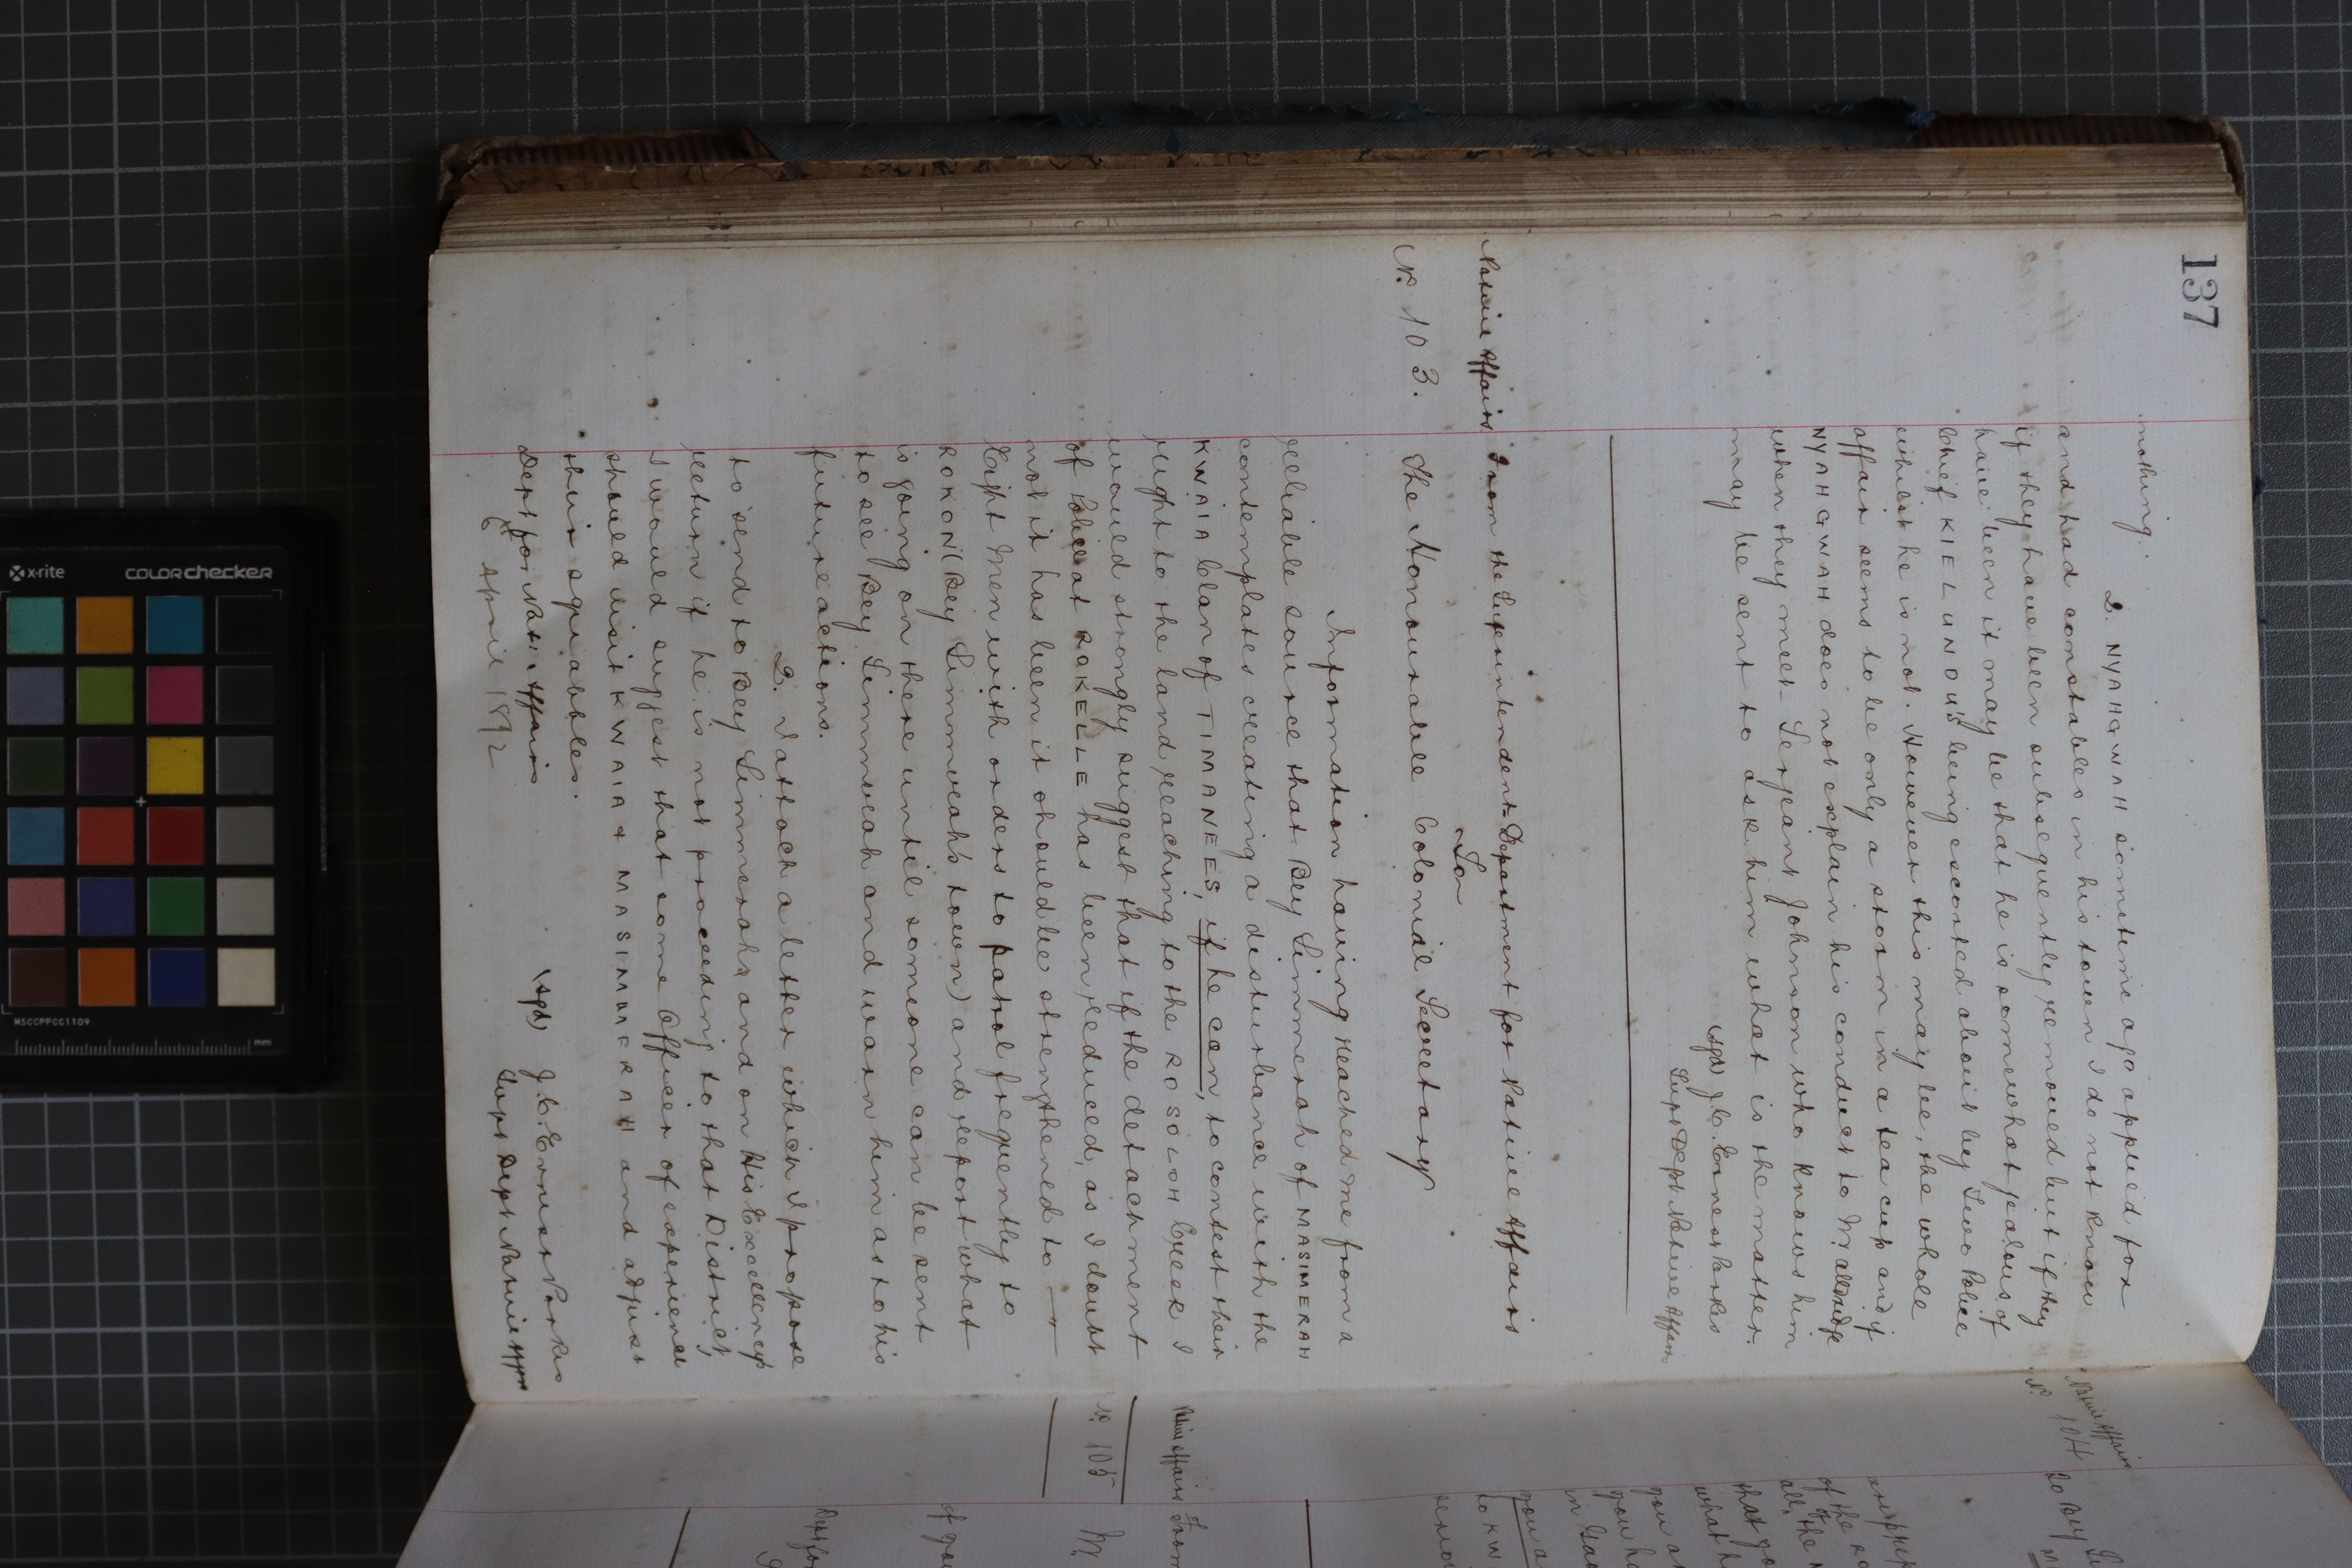 137
nothing.
2. NYAHGWAH sometime ago applied for
and had constables in his town I do not know
if they have been subsequently removed but if they
have been it may be that he is somewhat jealous of
Chief KIELUNOU's being escorted about by Two Police
whilst he is not. However this may be, the whole
affair seems to be only a storm in a tea cup and if
NYAHGWAH does not explain his conduct to Mr Alldridge
when they meet Serjeant Johnson who knows him
may be sent to ask him what is the matter.
(sgd) J.C. Ernest Parkes
Supt Dept Native Affairs
Native Affairs
From the Superintendent Department for Native Affairs
To
No. 103.
The Honourable Colonial Secretary
Information having reached me from a
reliable source that Bey Simmerah of MASIMERAH
contemplates creating a disturbance with the
KWAIA Clan of TIMANEES, if he can, to contest their
right to the land reaching to the ROSOLOH Creek I
would strongly suggest that if the detachment
of Police at ROKELLE has been reduced, as I doubt
not it has been it should be strengthened to
Eight Men with orders to patrol frequently to
ROKON (Bey Simmerah's town) and report what
is going on there until someone can be sent
to see Bey Simmerah and warn him as to his
future actions.
2. I attach a letter which I propose
to send to Bey Simmerah and on His Excellency's
return if he is not proceeding to that District,
I would suggest that some Officer of experience
should visit KWAIA & MASIMERAH and adjust
their squabbles.
(sgd) J.C. Ernest Parkes
Dept for Nati. Affairs
Supt Dept Native Affrs
6 April 1892
Native Affairs
No. 104
To Bey
of the
all, the
that yo
what h
you a
you h
in
you a
to KW
Native Affairs
From
No. 105
M
of you
Dept for